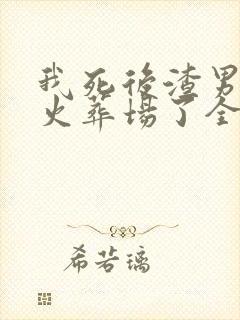 我死后渣男
火葬场了全
希若璃